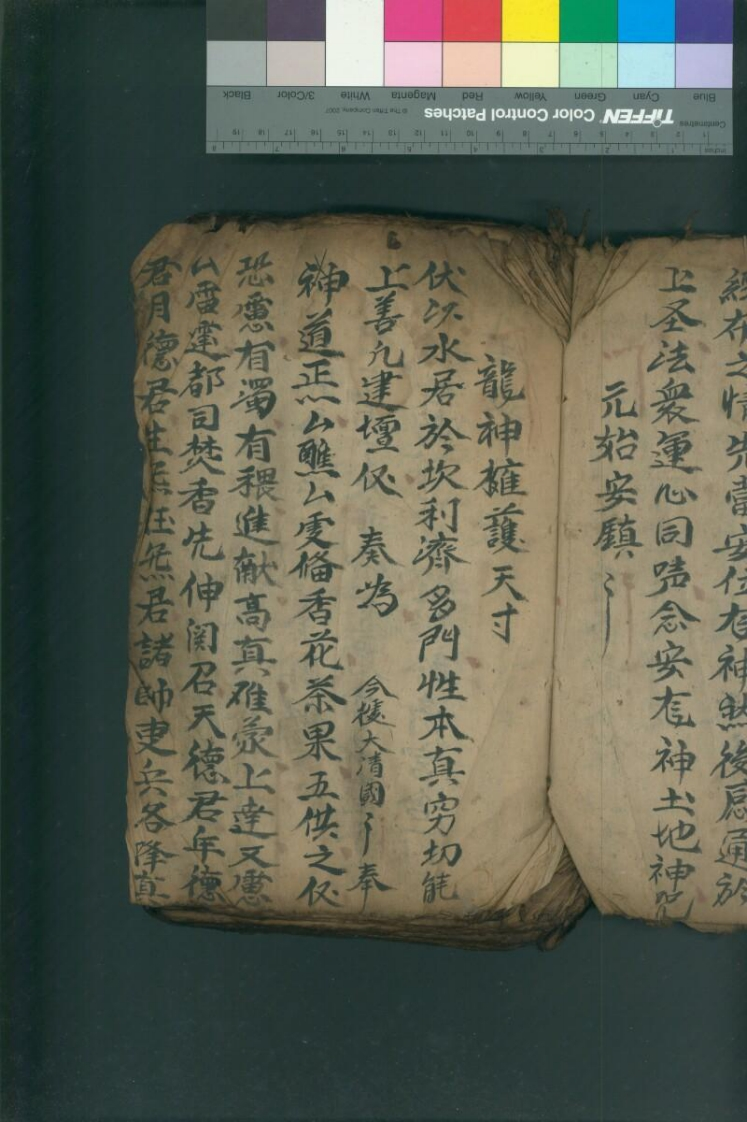 經布之情先當安位
神然後
通於
上圣法衆運心同唪念安
神土地神咒
元始安鎮
龍神擁護天寸
伏以水居於坎利濟多門性本真穷切能
上善凡建壇仪 奏為 今據大清國 奉
神道炁厶醮厶
備香花茶果五供之仪
恐慮有濁有穢進献高真
上達又慮
厶雷
都司焚香先伸関召天德君年德
君月德君
君諸帥吏兵各降真
Blue Cyan Green Yellow Red Magenta White 3/Color Black
TIFFEN Color Control Patches
© The Tiffen Company, 2007
Centimetres
Inches